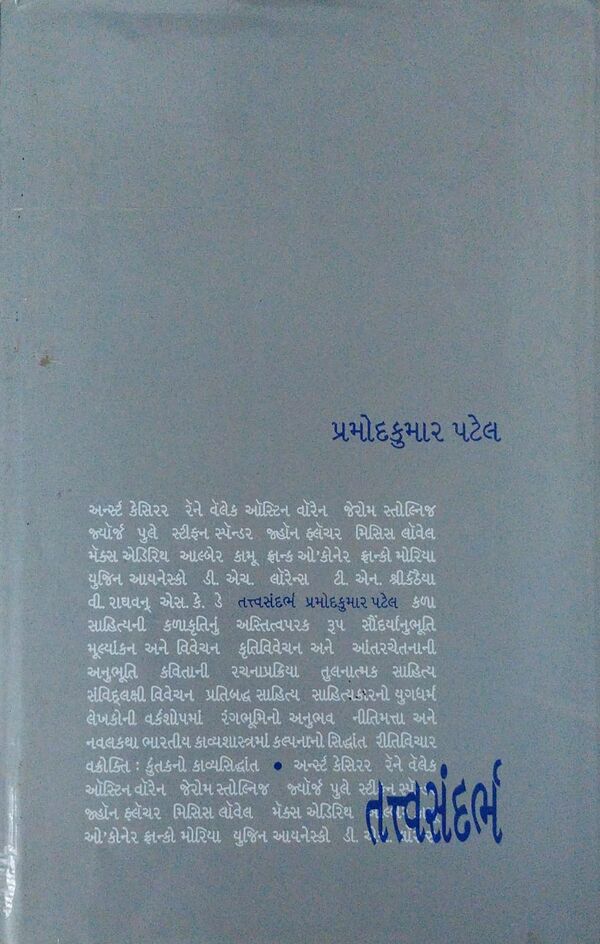 પ્રમોદકુમાર પટેલ
અર્ન્સ્ટ કેસિરર રૅને વૅલેક ઑસ્ટિન વૉરેન જેરોમ સ્તોલ્નિજ
જ્યૉર્જ પુલે સ્ટીફન સ્પૅન્ડર જ્હૉન ફ્લૅચર મિસિસ લૉવેલ
મૅક્સ એડિરિથ આલ્બેર કામૂ ફ્રાન્ક ઓ'કોનેર ફ્રાન્કો મોરિયા
યુજિન આયનેસ્કો ડી. એચ. લૉરેન્સ ટી. એન. શ્રીકંઠૈયા
વી. રાઘવન્ એસ. કે. ડે તત્ત્વસંદર્ભ પ્રમોદકુમાર પટેલ કળા
સાહિત્યની કળાકૃતિનું અસ્તિત્વપરક રૂપ સૌંદર્યાનુભૂતિ
મૂલ્યાંકન અને વિવેચન કૃતિવિવેચન અને આંતરચેતનાની
અનુભૂતિ કવિતાની રચનાપ્રક્રિયા તુલનાત્મક સાહિત્ય
સંવિદ્‌લક્ષી વિવેચન પ્રતિબદ્ધ સાહિત્ય સાહિત્યકારનો યુગધર્મ
લેખકોની વર્કશોપમાં રંગભૂમિનો અનુભવ નીતિમત્તા અને
નવલકથા ભારતીય કાવ્યશાસ્ત્રમાં કલ્પનાનો સિદ્ધાંત રીતિવિચાર
વક્રોક્તિ : કુંતકનો કાવ્યસિદ્ધાંત • અર્ન્સ્ટ કેસિરર રૅને વૅલેક
ઑસ્ટિન વૉરેન જેરોમ સ્તોલ્નિજ જ્યૉર્જ પુલે સ્ટીફન
જ્હૉન ફ્લૅચર મિસિસ લૉવેલ મૅક્સ એડિરિથ
ઓ'કોનેર ફ્રાન્કો મોરિયા યુજિન આયનેસ્કો ડી.
તત્ત્વસંદર્ભ